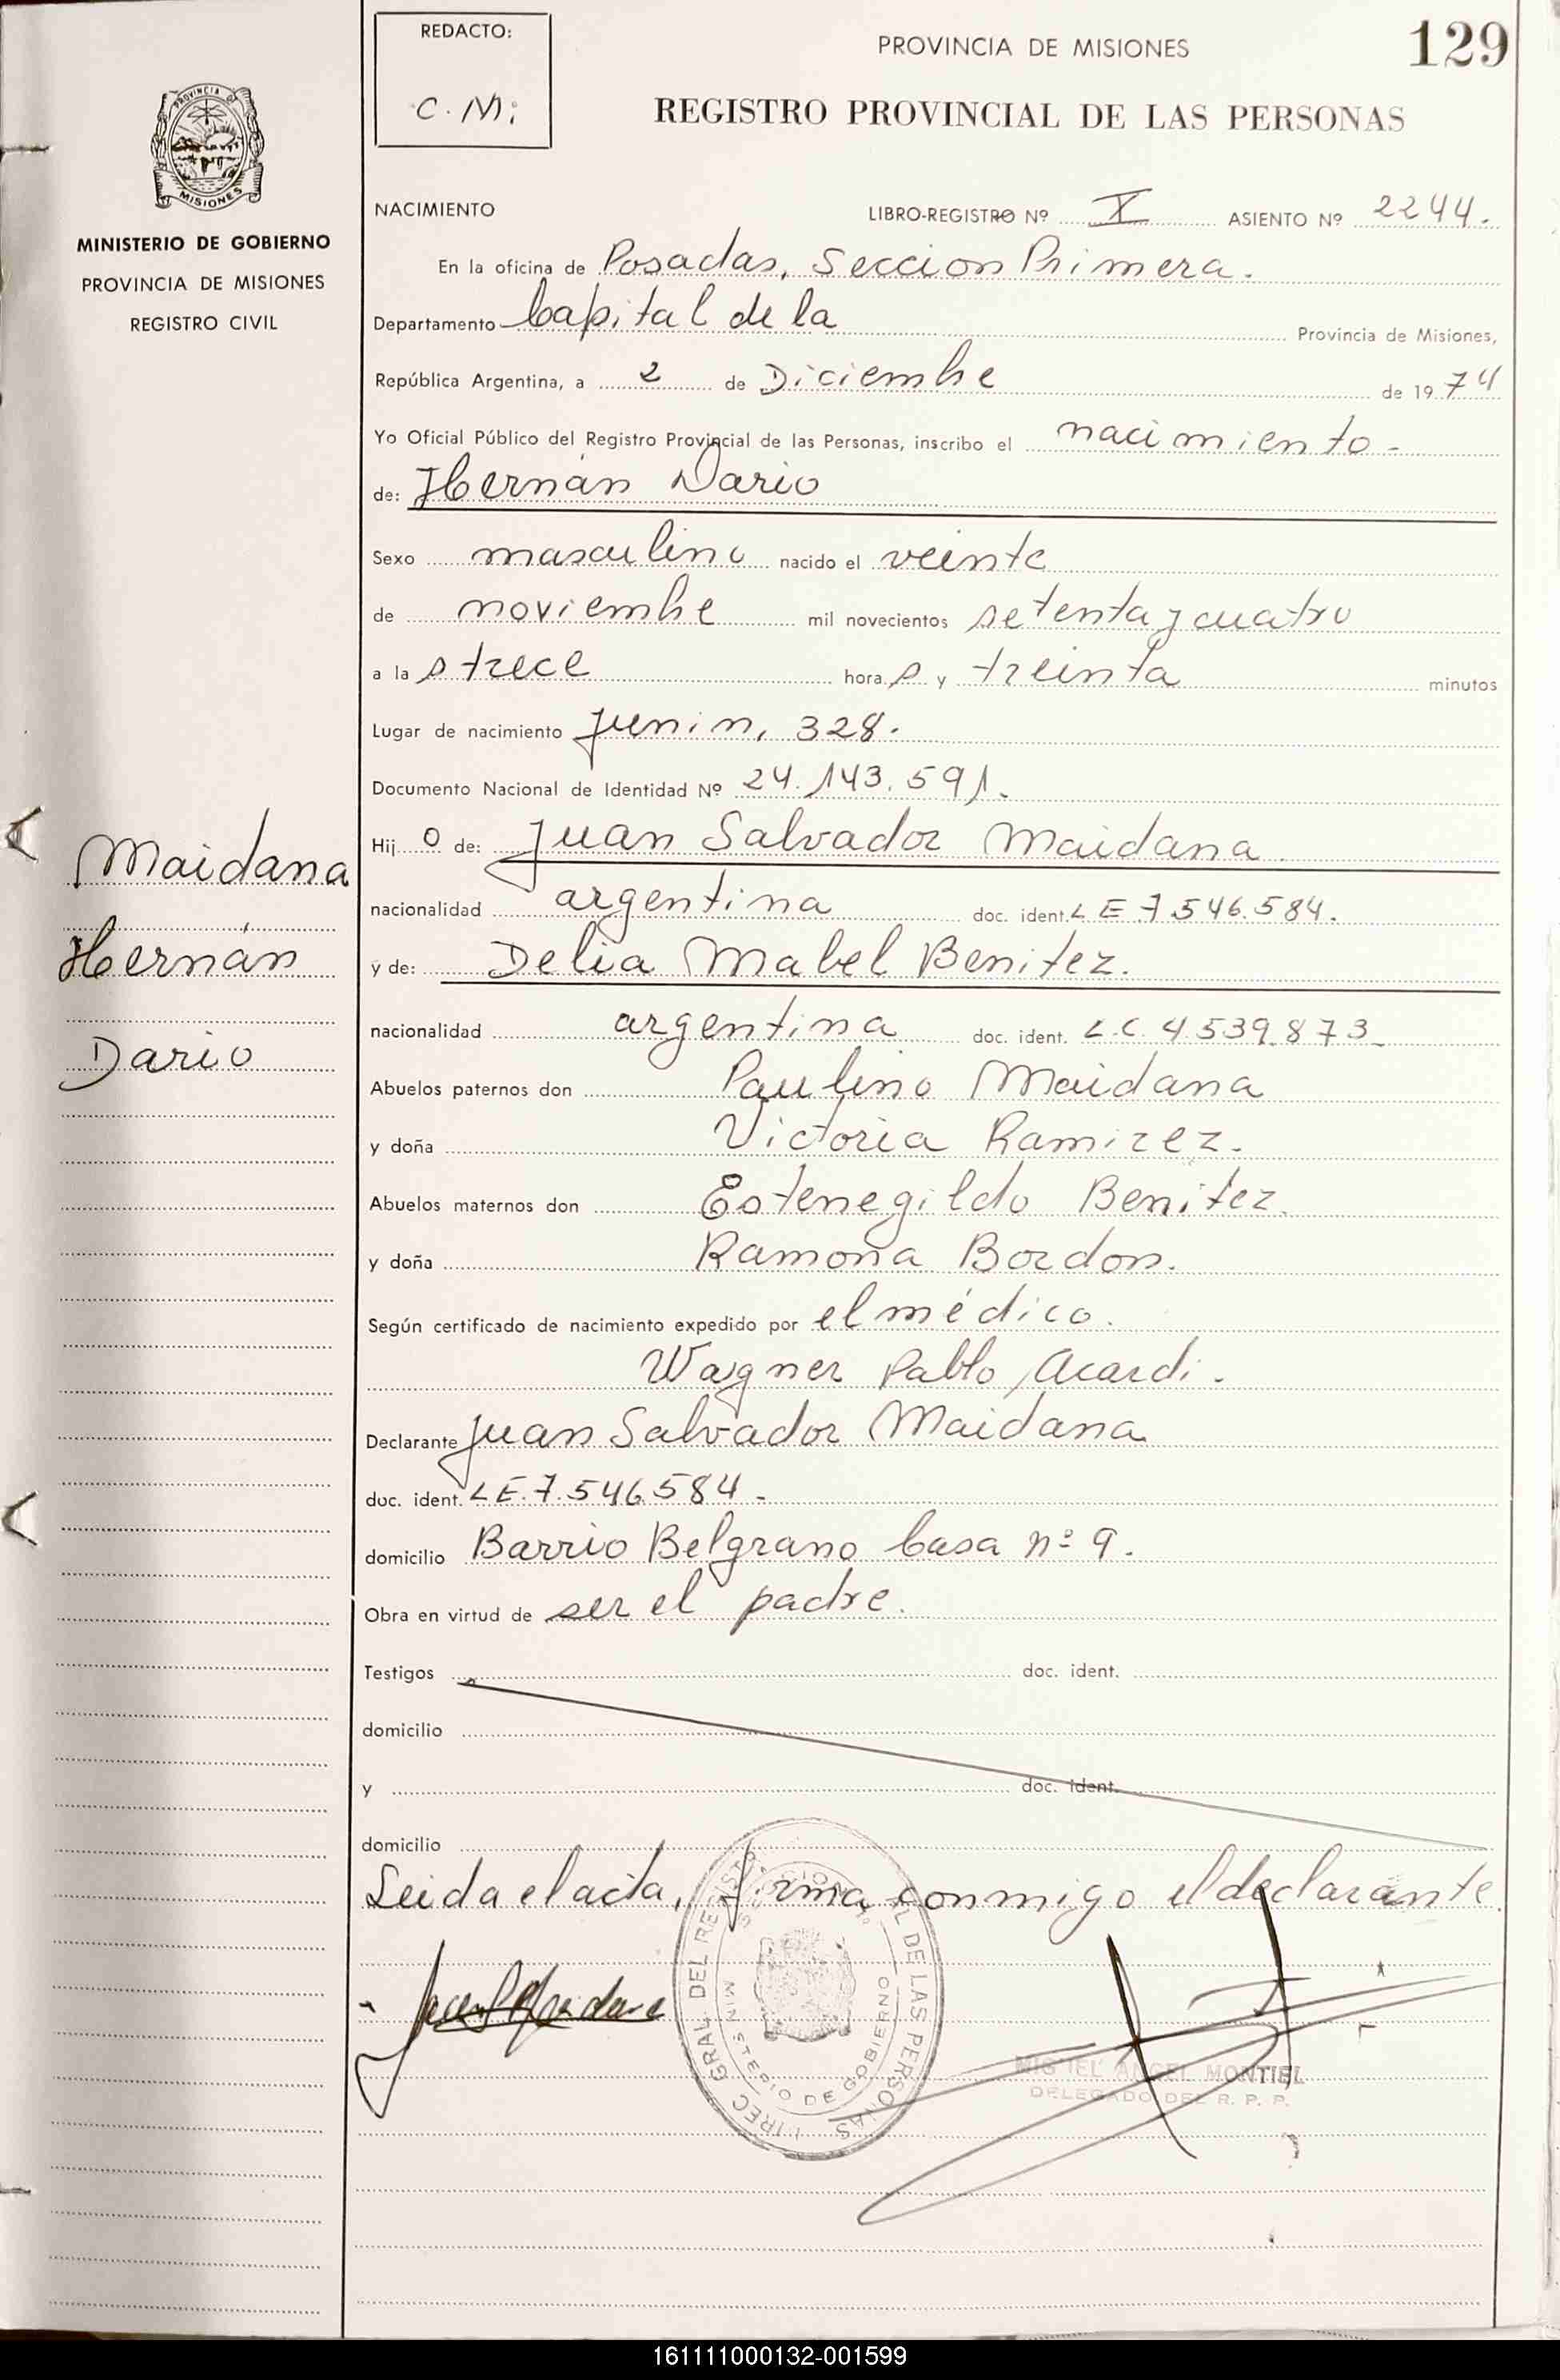 REDACTO:
C. M.
PROVINCIA DE MISIONES
129
REGISTRO PROVINCIAL DE LAS PERSONAS
PROVINCIA DE
MISIONES
MINISTERIO DE GOBIERNO
PROVINCIA DE MISIONES
REGISTRO CIVIL
Maidana
Hernán
Dario
NACIMIENTO LIBRO-REGISTRO Nº X ASIENTO Nº 2244.
En la oficina de Posadas, Seccion Primera.
Departamento Capital de la Provincia de Misiones,
República Argentina, a 2 de Diciembre de 1974
Yo Oficial Público del Registro Provincial de las Personas, inscribo el nacimiento -
de: Hernán Dario
Sexo masculino nacido el veinte
de noviembre mil novecientos setenta y cuatro
a la s trece hora s y treinta minutos
Lugar de nacimiento Junin, 328.
Documento Nacional de Identidad Nº 24.143.591.
Hij o de: Juan Salvador Maidana
nacionalidad argentina doc. ident. L E 7.546.584.
y de: Delia Mabel Benitez.
nacionalidad argentina doc. ident. L.C. 4.539.873
Abuelos paternos don Paulino Maidana
y doña Victoria Ramirez.
Abuelos maternos don Estenegildo Benitez.
y doña Ramona Bordon.
Según certificado de nacimiento expedido por el médico.
Wagner Pablo Acardi.
Declarante Juan Salvador Maidana
doc. ident. L E. 7.546.584.
domicilio Barrio Belgrano Casa nº 9.
Obra en virtud de ser el padre.
Testigos doc. ident.
domicilio
y doc. ident.
domicilio
Leida el acta, firma conmigo el declarante
DIREC. GRAL. DEL REGISTRO DE LAS PERSONAS
MINISTERIO DE GOBIERNO
MIGUEL ANGEL MONTIEL
DELEGADO DEL R. P. P.
161111000132-001599